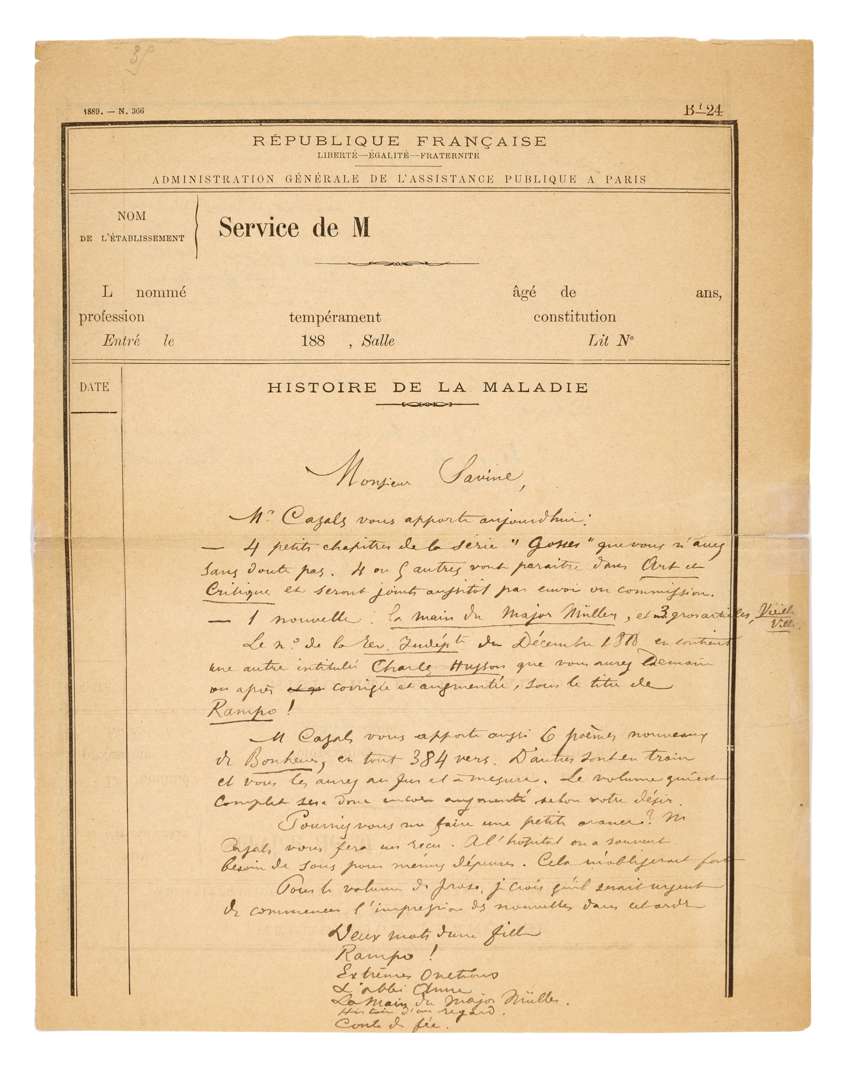 1889. — N. 366
Bt 24
RÉPUBLIQUE FRANÇAISE
LIBERTÉ—ÉGALITÉ—FRATERNITÉ
ADMINISTRATION GÉNÉRALE DE L'ASSISTANCE PUBLIQUE A PARIS
NOM
DE L'ÉTABLISSEMENT
Service de M
L nommé âgé de ans,
profession tempérament constitution
Entré le 188 , Salle Lit No
DATE
HISTOIRE DE LA MALADIE
Monsieur Savine,
Mr Cazals vous apporte aujourdhui :
— 4 petits chapitres de la série "Gosses" que vous n'avez
sans doute pas. 4 ou 5 autres vont paraître dans Art et
Critique et seront joints aussitôt par envoi ou commission.
— 1 nouvelle : la main du Major Müller, et 3 gros articles, Vieille
Ville
Le no de la Rev. Indépte du Décembre 18 en contient
une autre intitulée Charles Husson que vous aurez demain
ou après corrigée et augmentée, sous le titre de
Rampo !
M Cazals vous apporte aussi 6 poèmes nouveaux
de Bonheur, en tout 384 vers. D'autres sont en train
et vous les aurez au fur et à mesure. Le volume qui est
complet sera donc encore augmenté selon votre désir.
Pourriez vous me faire une petite avance ? M
Cazals vous fera un reçu. A l'hôpital on a souvent
besoin de sous pour menues dépenses. Cela m'obligerait fort
Pour le volume de prose, je crois qu'il serait urgent
de commencer l'impression des nouvelles dans cet ordre
Deux mots d'une fille
Rampo !
Extrêmes Onctions
L'abbé Anne
La Main du Major Müller.
Histoire d'un regard.
Conte de fée.